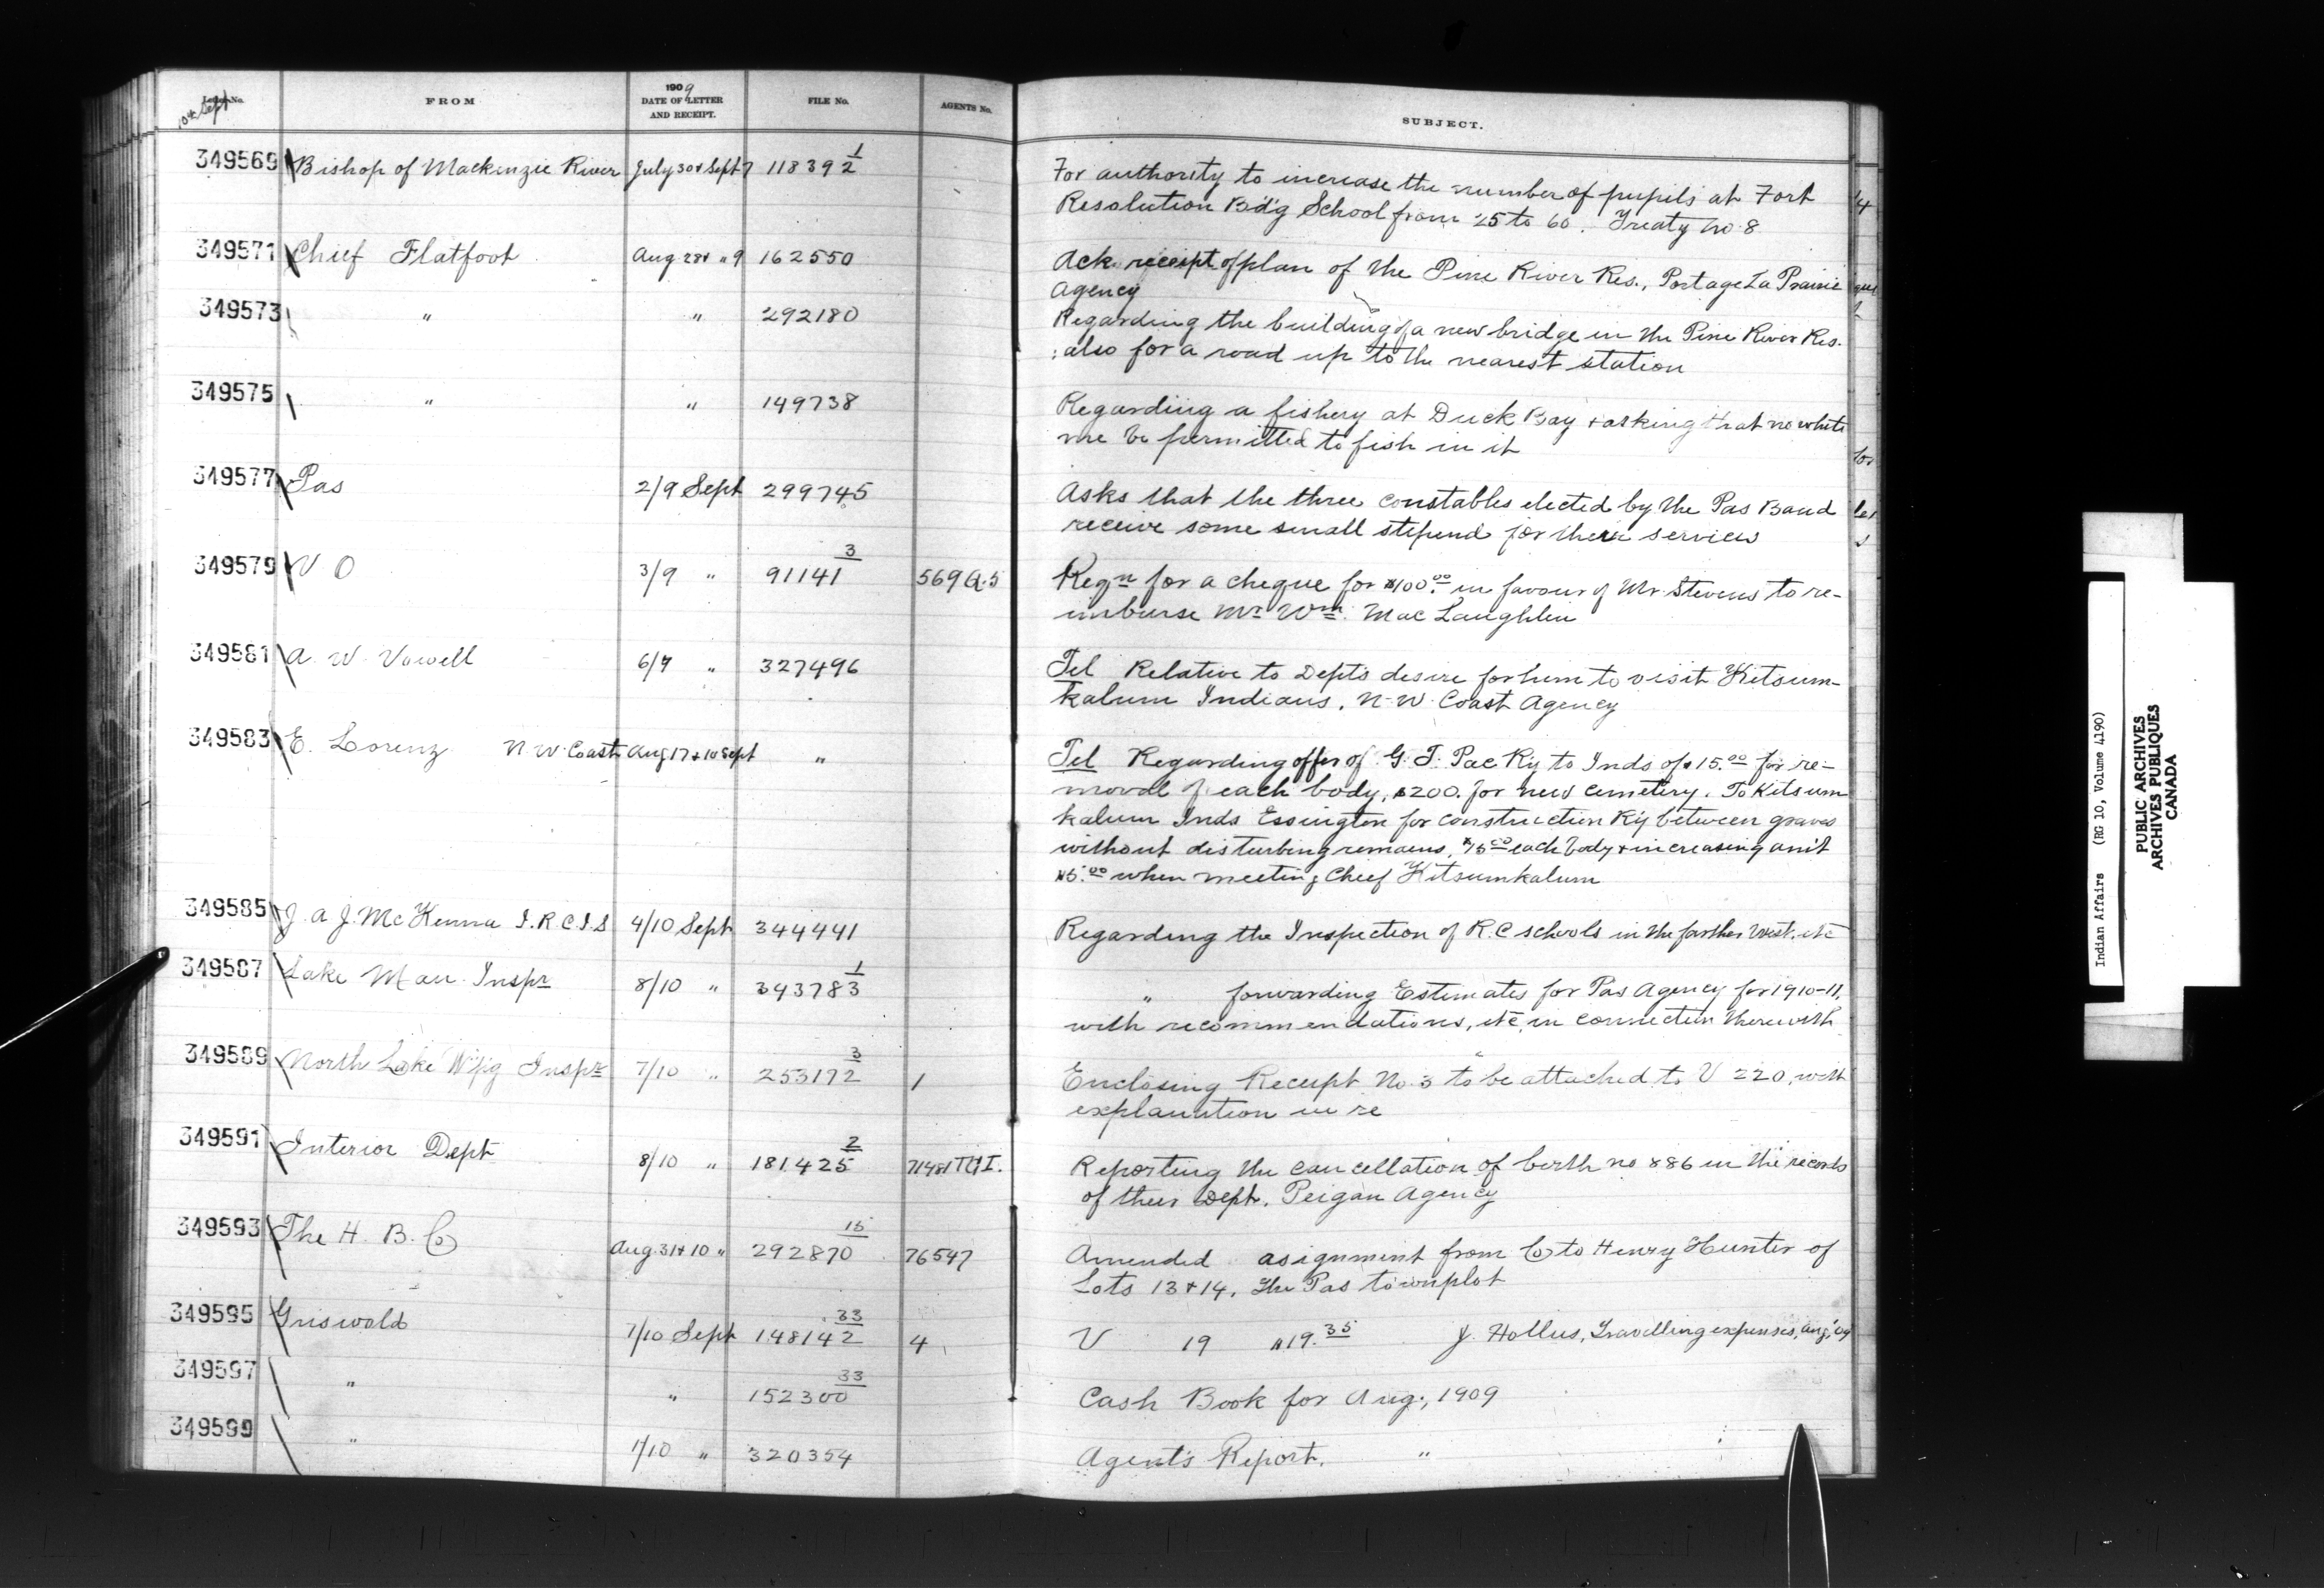 10th Sept
Letter No. FROM 1909 DATE OF LETTER AND RECEIPT. FILE No. AGENTS No. SUBJECT.
349569 Bishop of Mackenzie River July 30 & Sept 7 118392 1 For authority to increase the number of pupils at Fort
Resolution Bdg School from 25 to 60. Treaty No 8
349571 Chief Flatfoot Aug 28 & " 9 162550 Ack. receipt of plan of the Pine River Res., Portage La Prairie
Agency
349573 " " 292180 Regarding the building of a new bridge in the Pine River Res.
; also for a road up to the nearest station
349575 " " 149738 Regarding a fishery at Duck Bay & asking that no white
me be permitted to fish in it
349577 Pas 2/9 Sept 299745 Asks that the three constables elected by the Pas Band
receive some small stipend for their services
349579 V O 3/9 " 91141 3 569 Q.5 Reqn for a cheque for $100.00 in favour of Mr Stevens to re-
imburse Mr Wm. MacLaughlin
349581 A. W. Vowell 6/9 " 327496 Tel Relative to Dept's desire for him to visit Kitsum-
kalum Indians, N-W Coast Agency
349583 E. Lorenz N W Coast Aug 17 & 10 Sept " Tel Regarding offer of G. T. Pac Ry to Inds of $15.00 for re-
moval of each body, $200. for new cemetery. To Kitsum
kalum Inds Essington for construction Ry between graves
without disturbing remains, $15.00 each body & increasing am't
$5.00 when meeting Chief Kitsumkalum
349585 J. A J. McKenna I.R.C.I.S 4/10 Sept 344441 Regarding the Inspection of R.C schools in the farther West, etc
349587 Lake Man. Inspr 8/10 " 343783 1 " forwarding Estimates for Pas Agency for 1910-11,
with recommendations, etc, in connection therewith
349589 North Lake W'pg Inspr 7/10 " 253172 3 1 Enclosing Receipt No. 3 to be attached to V 220, with
explanation in re
349591 Interior Dept 8/10 " 181425 2 71481 Reporting the cancellation of berth no 886 in the records
of their Dept. Peigan Agency
349593 The H. B. Co Aug. 31 & 10 " 292870 15 76547 Amended asignment from Co to Henry Hunter of
Lots 13 & 14, The Pas townplot
349595 Griswold 7/10 Sept 148142 33 4 V 19 $19.35 J. Hollies, Travelling expenses, Aug, '09
349597 " " 152300 33 Cash Book for Aug., 1909
349599 " 1/10 " 320354 Agent's Report. "
Indian Affairs (RG 10, Volume 4190)
PUBLIC ARCHIVES
ARCHIVES PUBLIQUES
CANADA